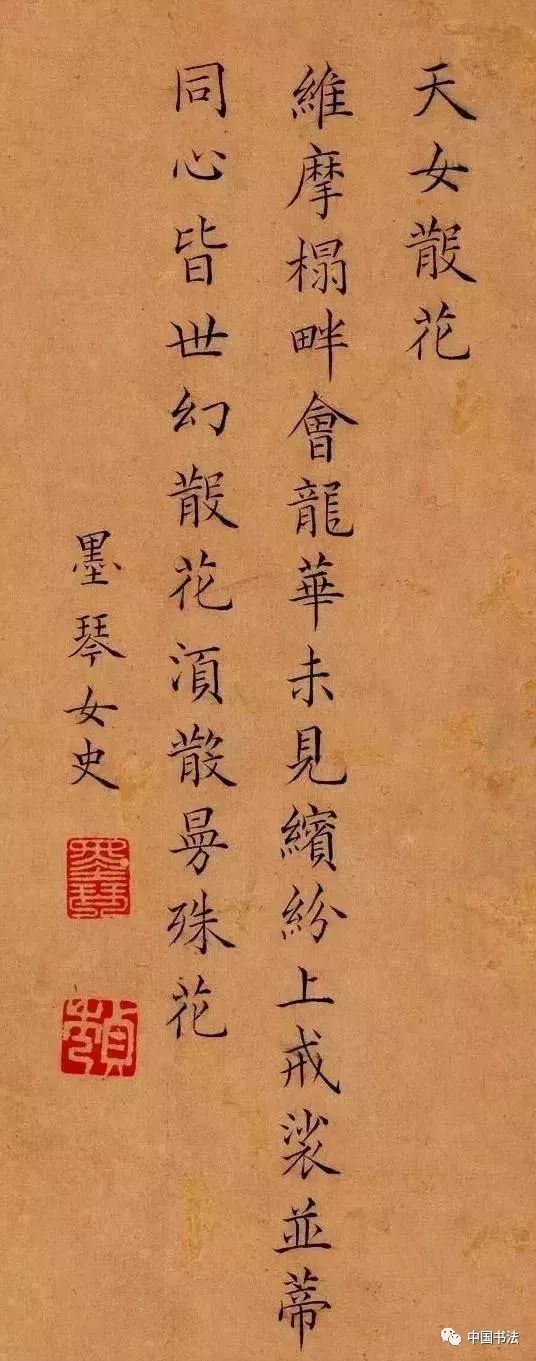 天女散花
維摩榻畔會龍華未見繽紛上戒裟並蒂
同心皆世幻散花湏散曼殊花
墨琴女史
墨琴
貞秀
中国书法